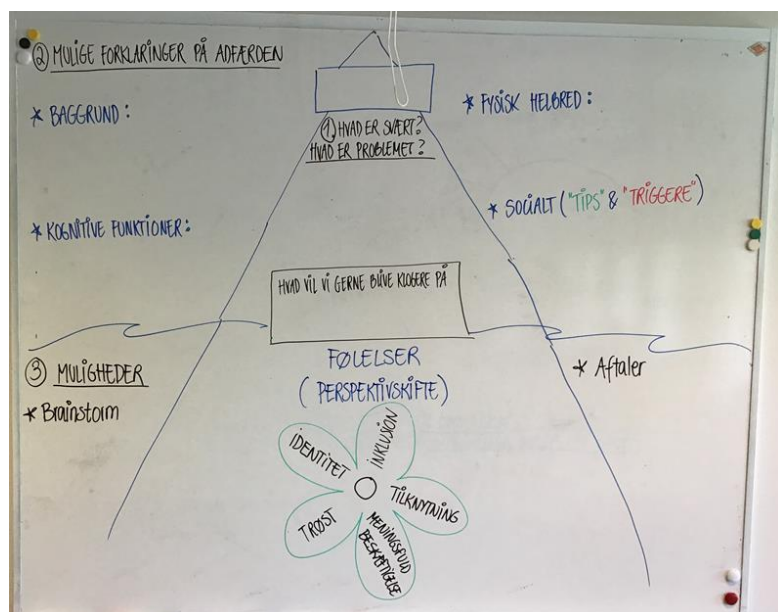 ② MULIGE FORKLARINGER PÅ ADFÆRDEN
* BAGGRUND:
* KOGNITIVE FUNKTIONER:
① HVAD ER SVÆRT?
HVAD ER PROBLEMET?
* FYSISK HELBRED:
* SOCIALT ("TIPS" & "TRIGGERE")
HVAD VIL VI GERNE BLIVE KLOGERE PÅ
③ MULIGHEDER
* Brainstorm
FØLELSER
(PERSPEKTIVSKIFTE)
* Aftaler
IDENTITET
INKLUSION
TILKNYTNING
MENINGSFULD
BESKÆFTIGELSE
TRØST